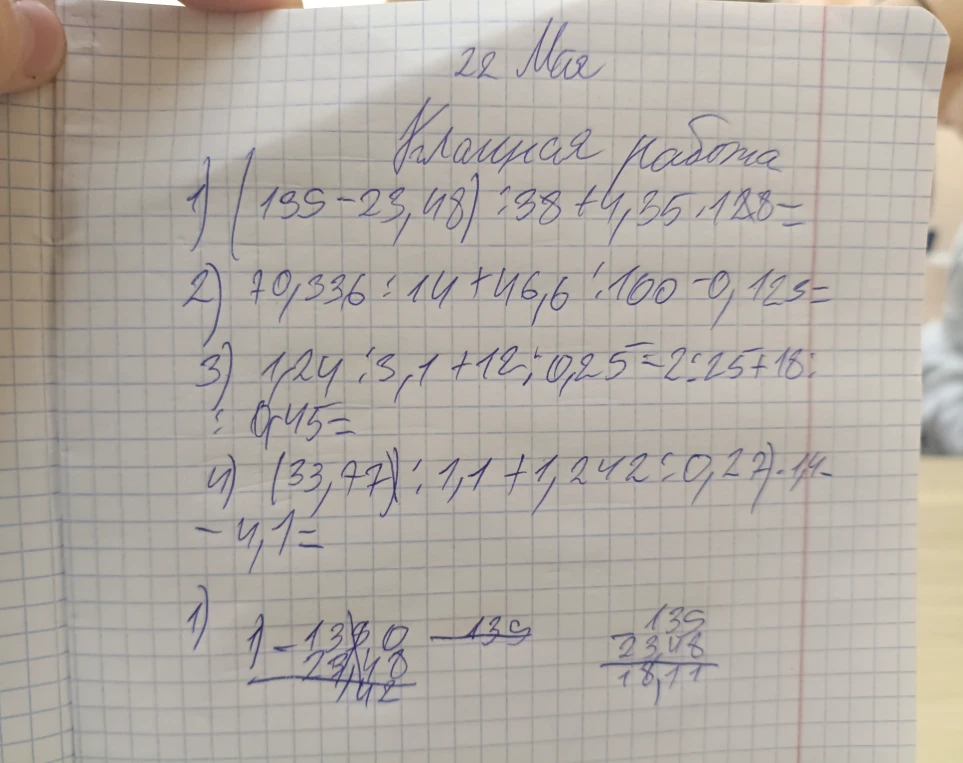 22 Мая
Классная работа
1) (139-23,48):38+4,35·128=
2) 70,336:14+46,6:100-0,125=
3) 1,24:3,1+12:0,25-2:25+18:
:0,45=
4) (33,77):1,1+1,242:0,27)·1,4-
-4,1=
1) 1) - 139 0 139 139
23,48 23,48
,42 18,11